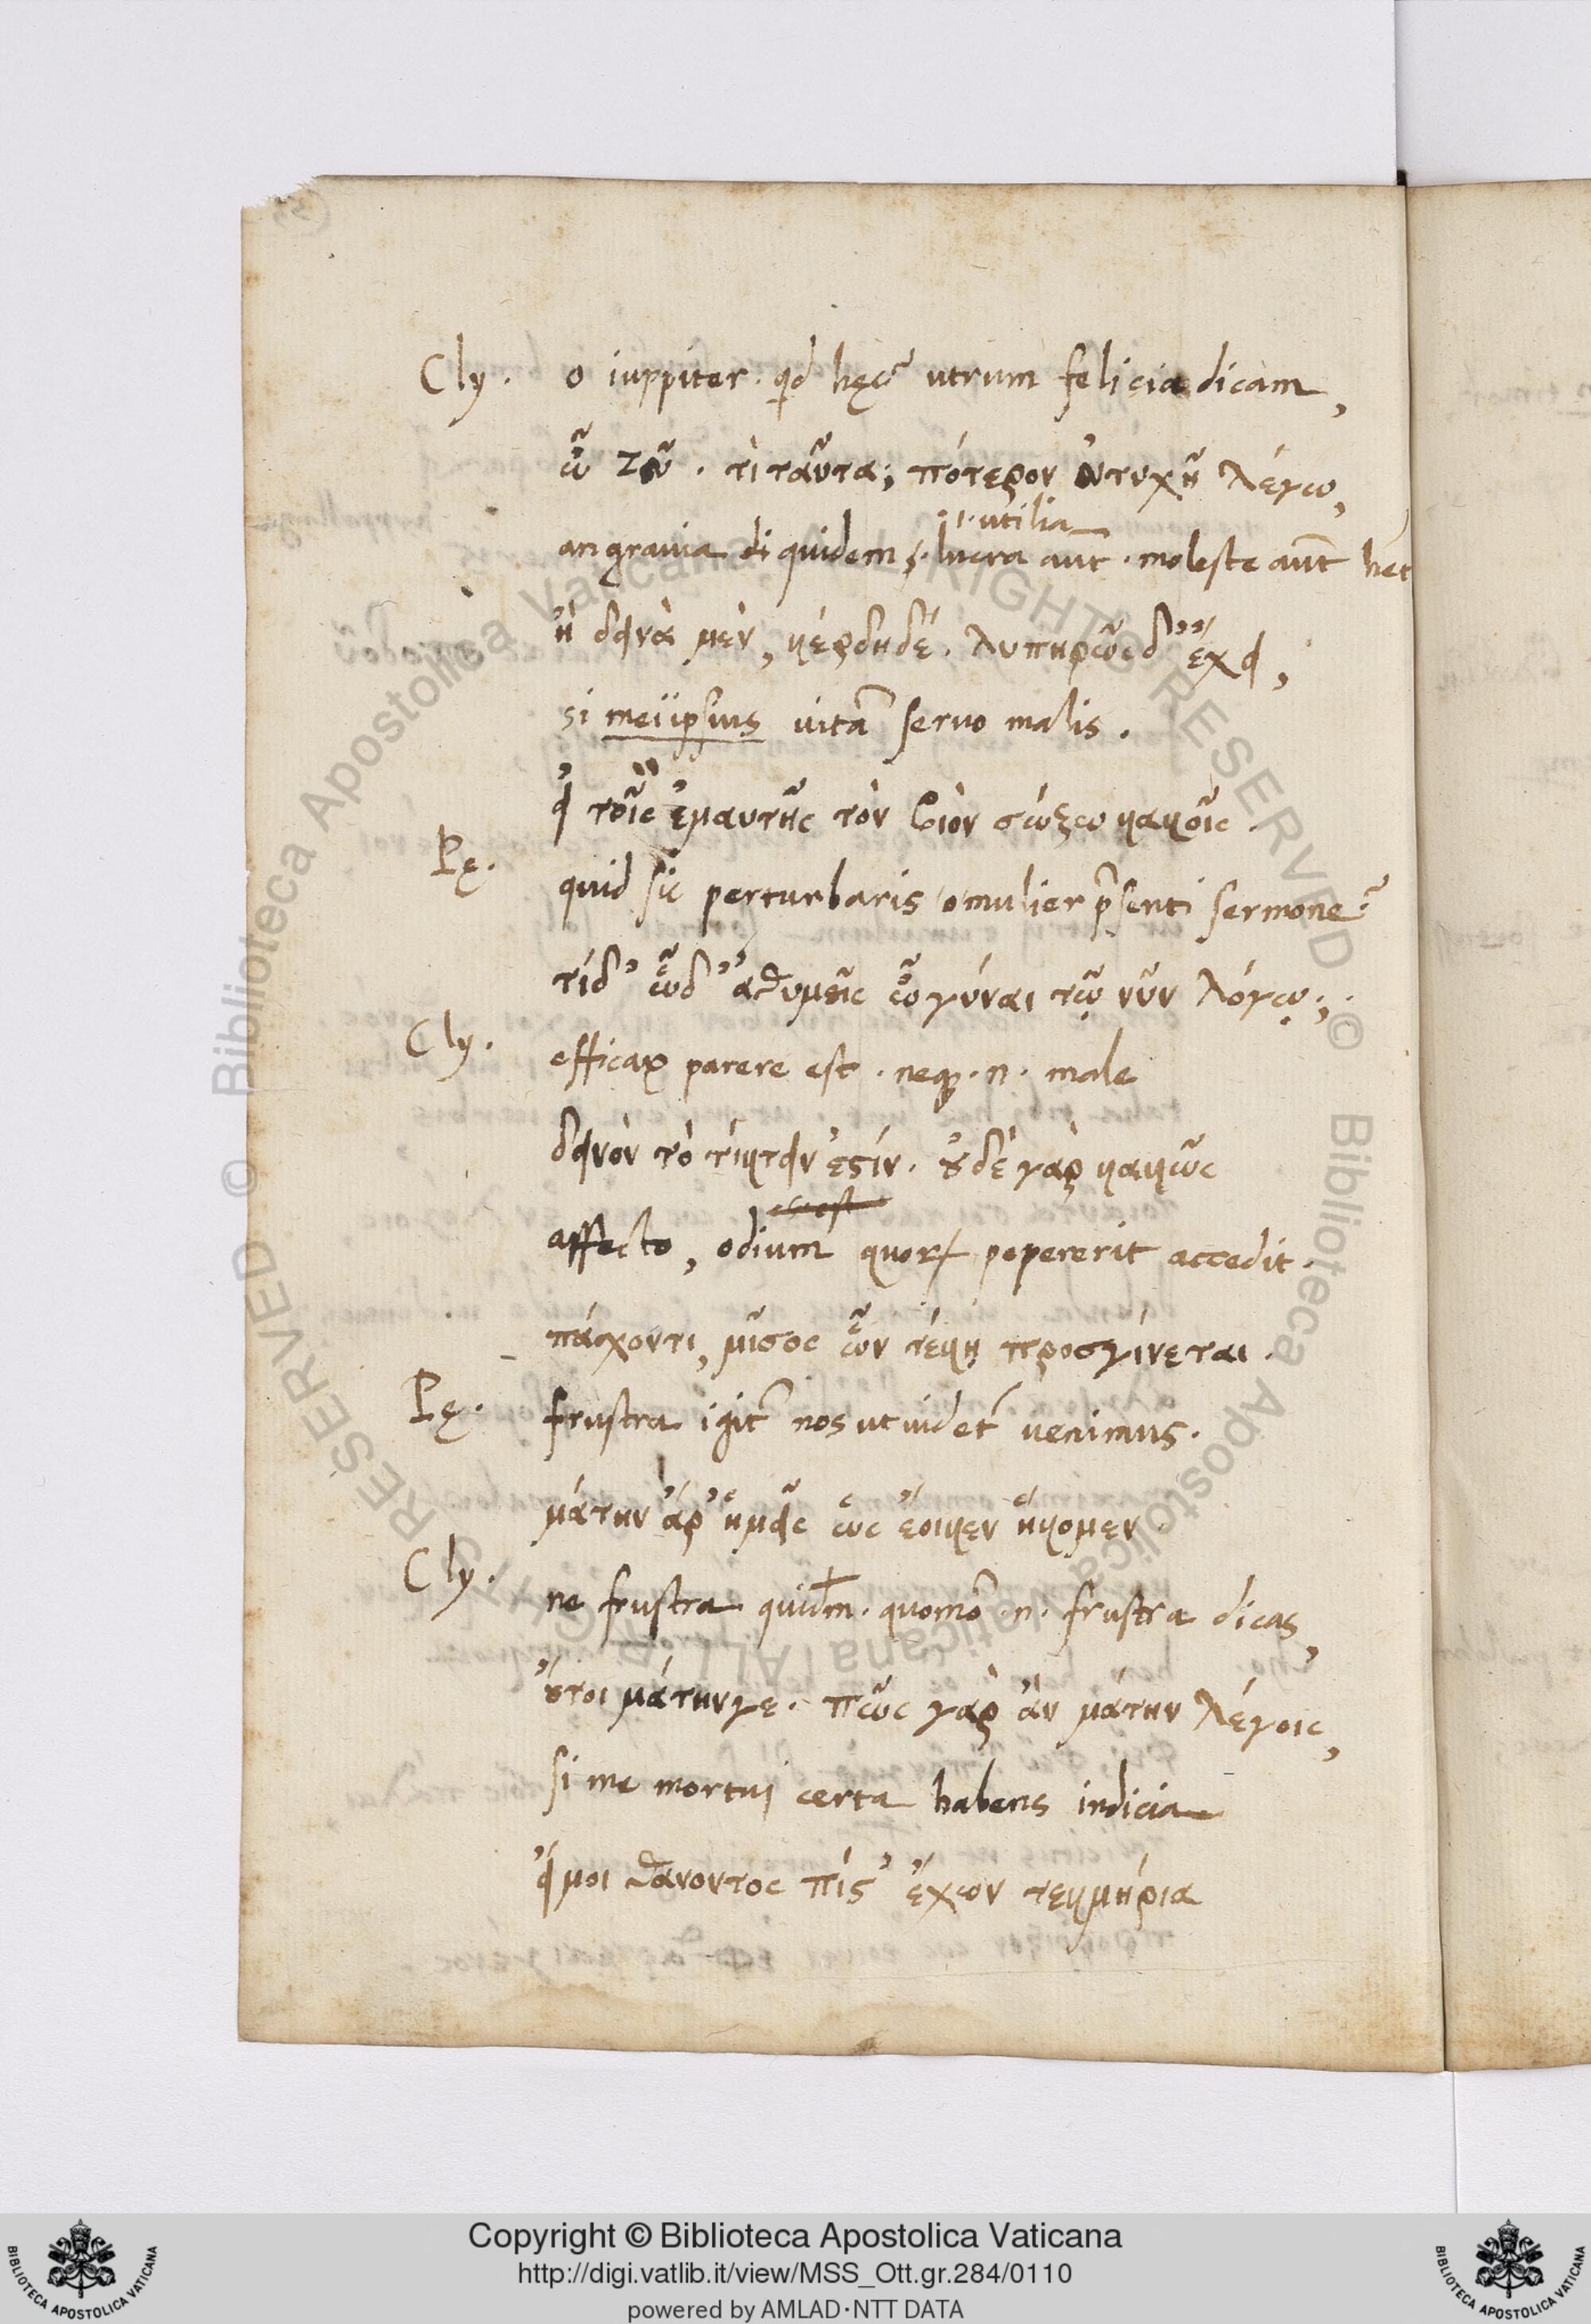 Cly. o iuppiter. qd hęc? utrum felicia dicam,
ὦ Ζεῦ. τὶ ταῦτα; πότερον εὐτυχῆ λέγω,
.i. utilia
an gravia di quidem s. lucra aut̃. moleste aut̃ het
ἢ δεινὰ μὲν, κέρδη δέ. λυπηρῶς δ' ἔχει,
si meiipsius uitā servo malis.
εἰ τοῖς ἐμαυτῆς τὸν βίὸν σώζω κακοῖς.
Pę. quid sic perturbaris o mulier p̃senti sermone?
τί δ' ὧδ' ἀθυμεῖς ὦ γύναι τῷ νῦν λόγῳ;
Cly. efficax parere est. neq;. n. male
δεινὸν τὸ τίκτειν ἐστίν. οὐδὲ γὰρ κακῶς
affecto, odium quorum pepererit accedit.
πάσχοντι, μῖσος ὧν τέκῃ προσγίνεται.
Pę. frustra igit̃ nos ut uidet̃ uenimus.
μάτην ἄρ' ἡμεῖς ὡς ἔοικεν ἥκομεν.
Cly. ne frustra quidm. quomõ. n. frustra dicas,
οὔτοι μάτην γε. πῶς γὰρ ἂν μάτην λέγοις,
si me mortui certa habens indicia
εἴ μοι θανοντος πίστ' ἔχων τεκμήρια
Copyright © Biblioteca Apostolica Vaticana
http://digi.vatlib.it/view/MSS_Ott.gr.284/0110
powered by AMLAD·NTT DATA